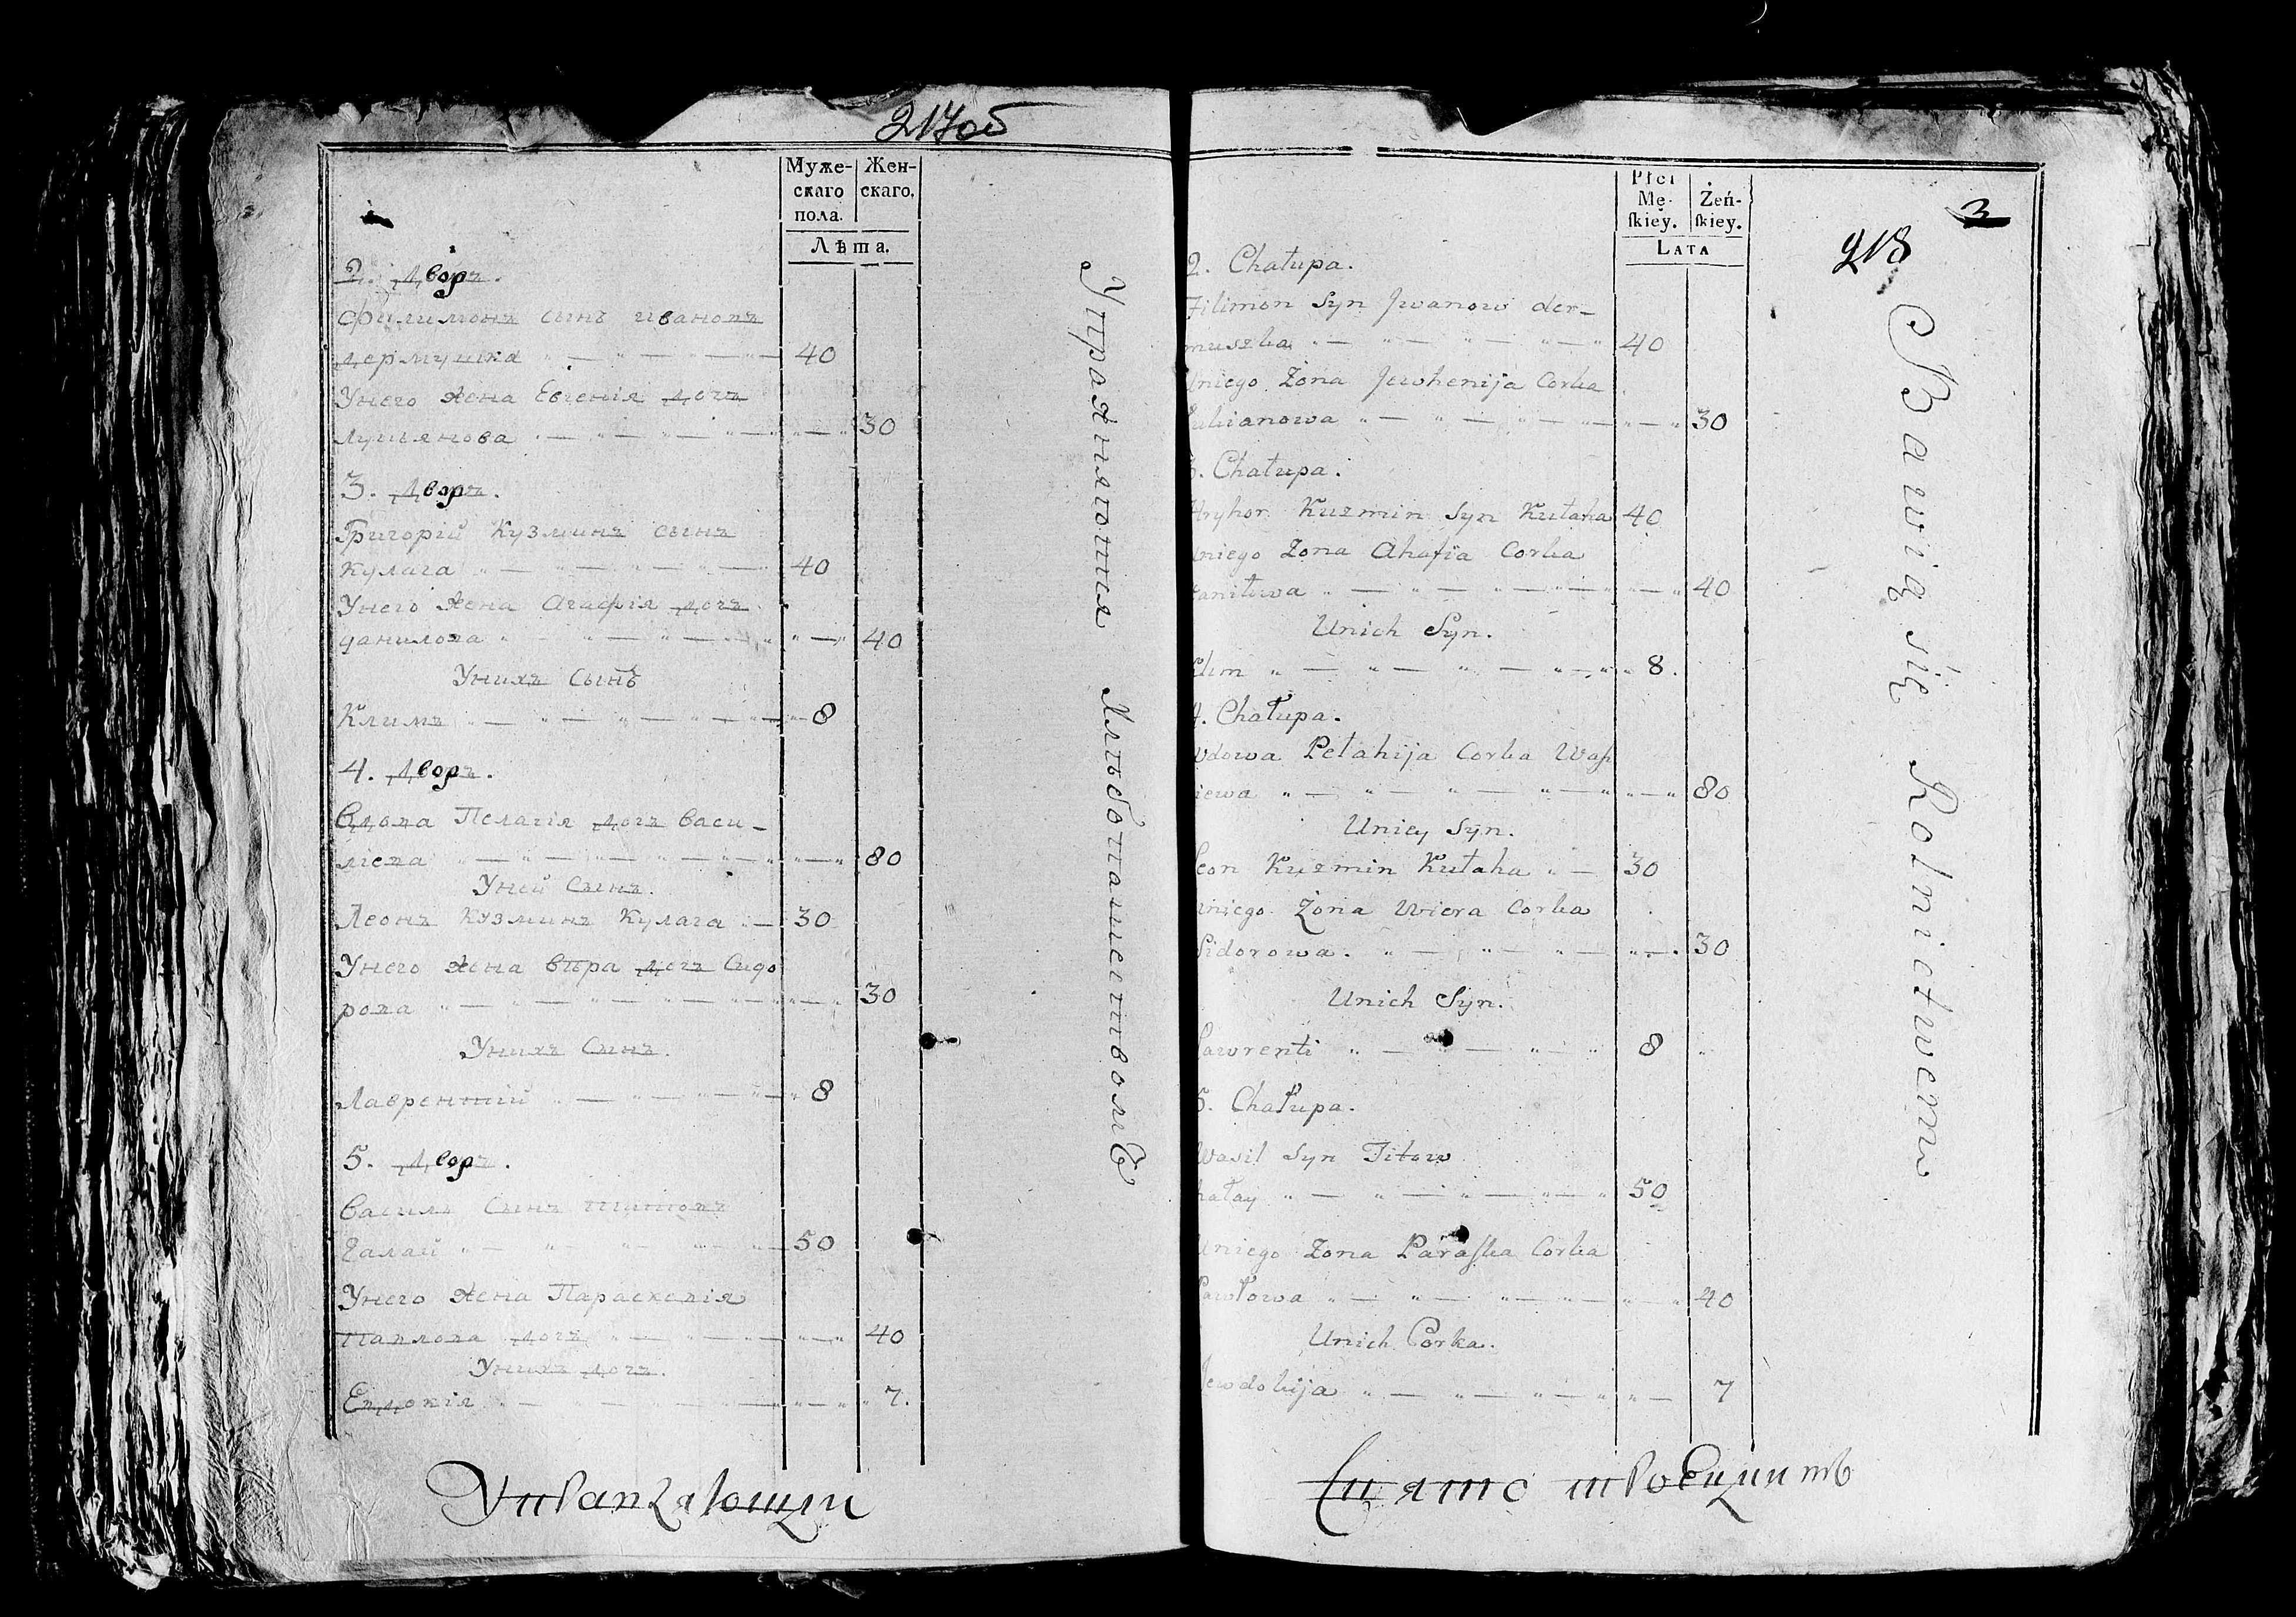 217об
Муже-
скаго
пола.
Жен-
скаго.
Лѣта.
2. Дворъ.
Филимонъ сынъ ивановъ
дермушка 40
Унего жена Евгенія дочь
лукьянова 30
3. Дворъ.
Григорій Кузминъ сынъ
кулага 40
Унего жена Агафія дочь
данилова 40
Унихъ сынъ
Климъ 8
4. Дворъ.
Вдова Пелагія дочь васи-
лієва 80
Уней сынъ.
Леонъ кузминъ кулага 30
Унего жена вѣра дочь Сидо
рова 30
Унихъ сынъ.
Лаврентій 8
5. Дворъ.
василь сынъ титовъ
Галай 50
Унего жена Параскевія
Павлова дочь 40
Унихъ дочь.
Евдокія 7.
Упражняются Хлѣбопашествомъ
Płci
Mę-
ſkiey.
Żeń-
ſkiey.
LATA
3
218
2. Chałupa.
Filimon Syn Jwanow der-
muszka 40
Uniego Żona Jewhenija Corka
Łukianowa 30
3. Chałupa.
Hryhor Kuzmin Syn Kułaha 40
Uniego Zona Ahafia Corka
Daniłowa 40
Unich Syn.
Klim 8.
4. Chałupa.
Wdowa Pełahija Corka Waſi
liewa 80
Uniey Syn.
Leon Kuzmin Kułaha 30
Uniego Żona Wiera Corka
Sidorowa. 30
Unich Syn.
Lawrenti 8
5. Chałupa.
Wasil Syn Titow
hałay 50
Uniego Zona Paraſka Corka
Pawłowa 40
Unich Corka.
Jewdokija 7
Bawią się Rolnictwem